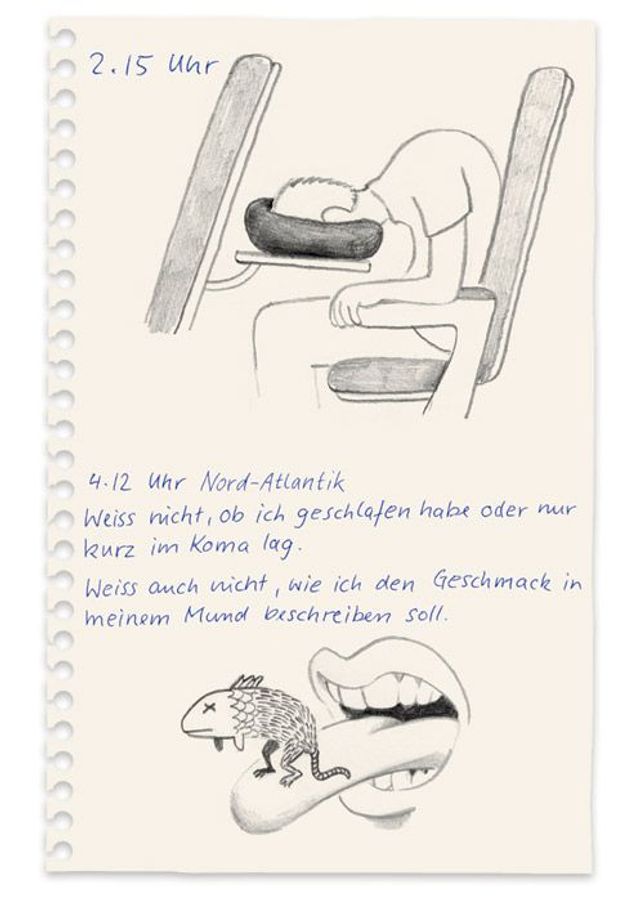 2.15 Uhr
4.12 Uhr Nord-Atlantik
Weiss nicht, ob ich geschlafen habe oder nur
kurz im Koma lag.
Weiss auch nicht, wie ich den Geschmack in
meinem Mund beschreiben soll.